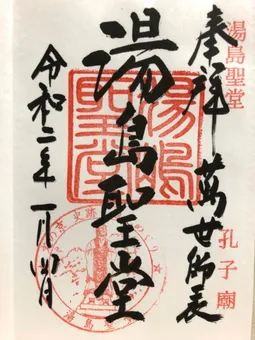 湯島聖堂
孔子廟
奉拝 萬世師表
湯島聖堂
令和二年 一月 四日
湯島聖堂